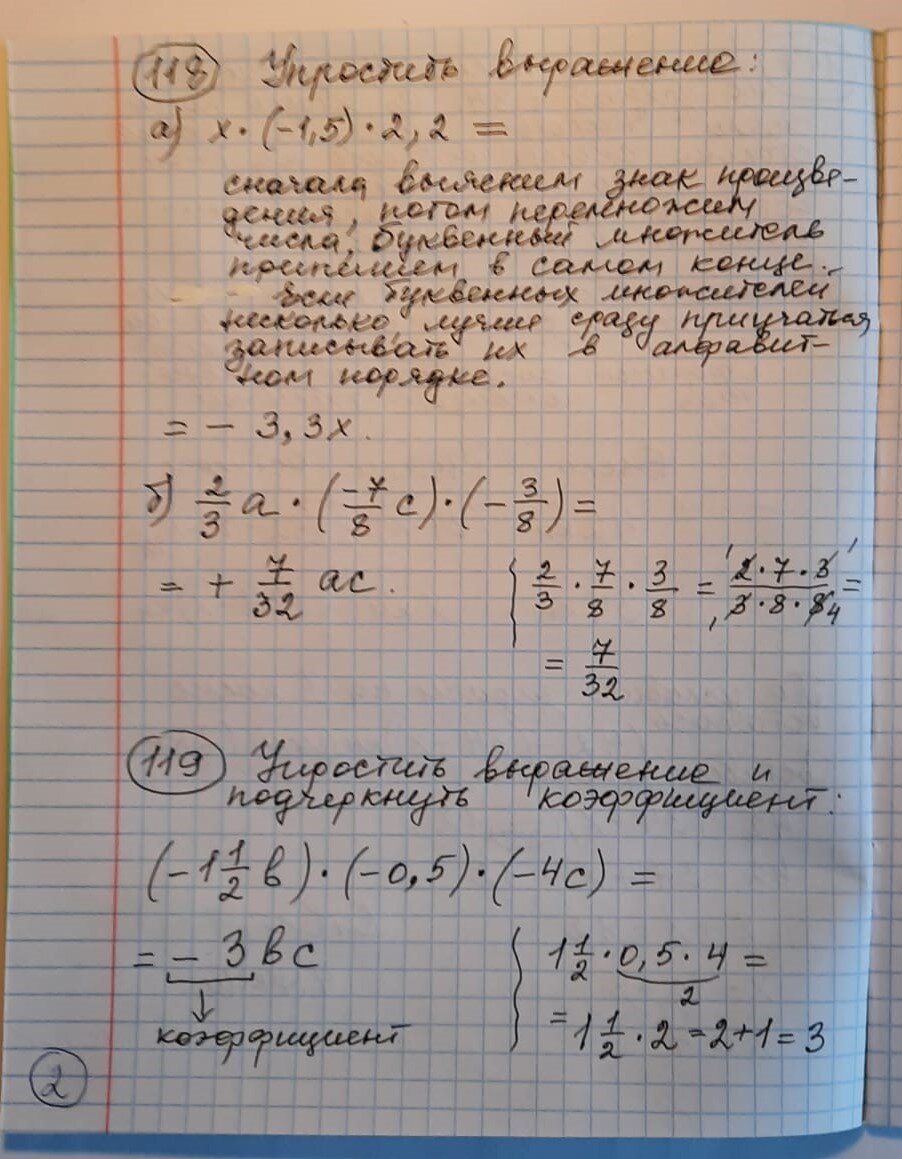 118 Упростить выражение:
а) x · (-1,5) · 2,2 =
сначала выясним знак произве-
дения, потом перемножим
числа, буквенный множитель
припишем в самом конце.
Если буквенных множителей
несколько, лучше сразу приучаться
записывать их в алфавит-
ном порядке.
= - 3,3x.
б) 2/3 a · (-7/8 c) · (-3/8) =
= + 7/32 ac. { 2/3 · 7/8 · 3/8 = 2·7·3/3·8·8 =
= 7/32
119 Упростить выражение и
подчеркнуть коэффициент:
(-1 1/2 b) · (-0,5) · (-4c) =
= - 3bc { 1 1/2 · 0,5 · 4 =
2
коэффициент = 1 1/2 · 2 = 2+1 = 3
2